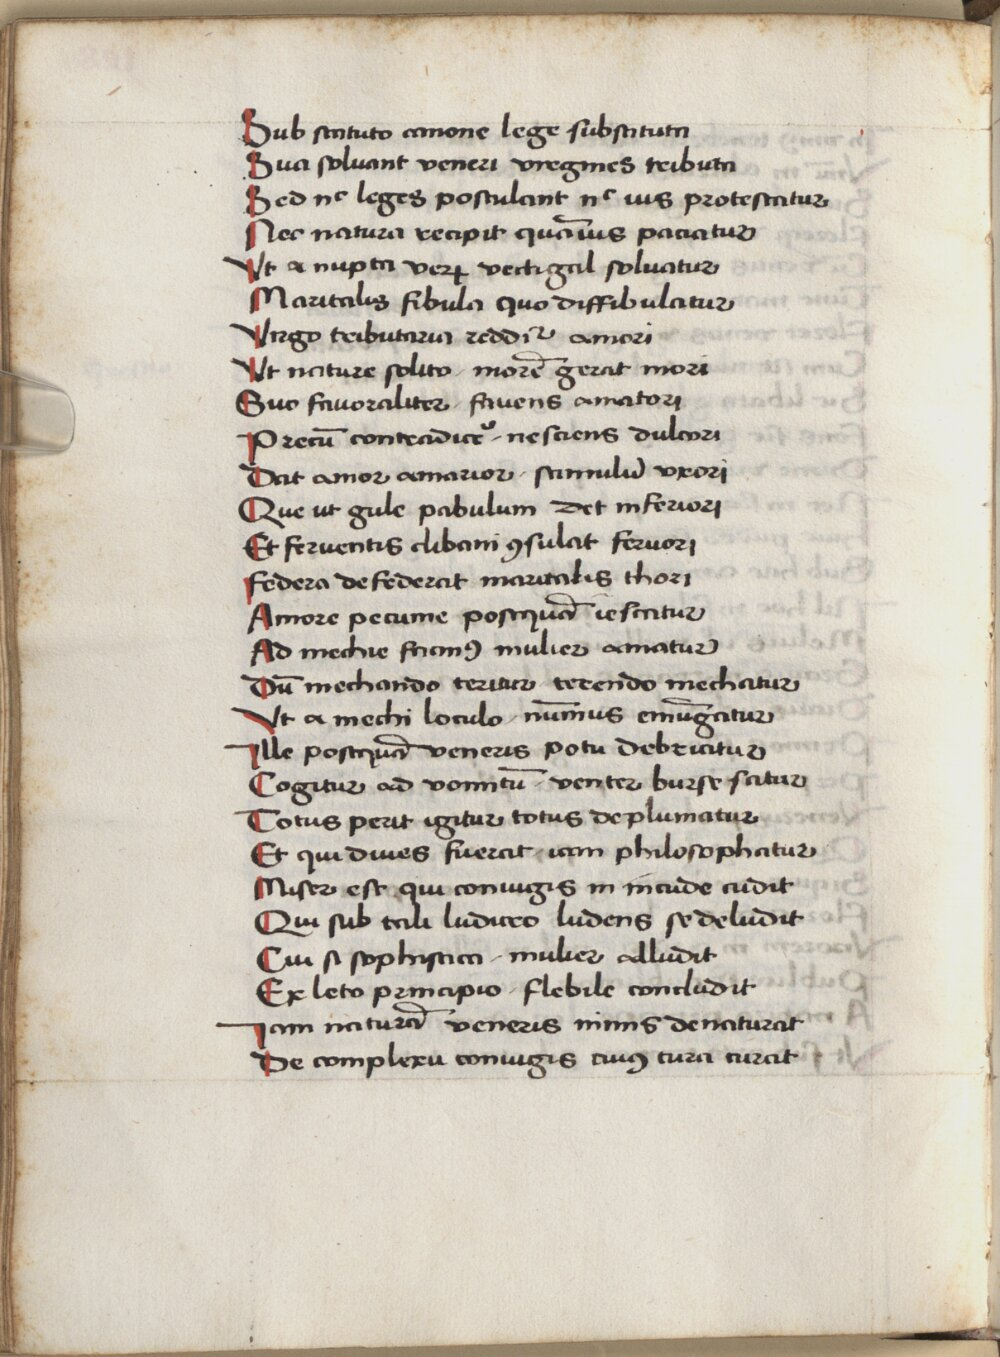 Sub statuto canone lege substituta
Sua solvant veneri virgines tributa
Sed nec leges postulant nec ius protestatur
Nec natura recipit quāvis patiatur
Ut a nupta vectigal solvatur
Maritalis fibula quo diffibulatur
Virgo tributaria amori
Ut nature solito morē gerat mori
Suo favoraliter favens amatori
Precū nesciens dulcori
Dat amor amarior stimulū uxori
Que ut gule pabulum det inferiori
Et ferventis clibani ꝯsulat fervori
Federa defederat maritalis thori
Amore pecunie postquā
Ad mechie mulier amatur
Dū mechando teritur terendo mechatur
Ut a mechi loculo nūmus emūgatur
Ille postquā veneris potu debriatur
Cogitur ad vomitū venter burse satur
Totus perit igitur totus deplumatur
Et qui dives fuerat iam philosophatur
Miser est qui coniugis in incude cudit
Qui sub tali ludicro ludens se deludit
Cui si sophistica mulier alludit
Ex leto principio flebile concludit
Iam naturā veneris nimis denaturat
De complexu coniugis cuiꝯ cura curat